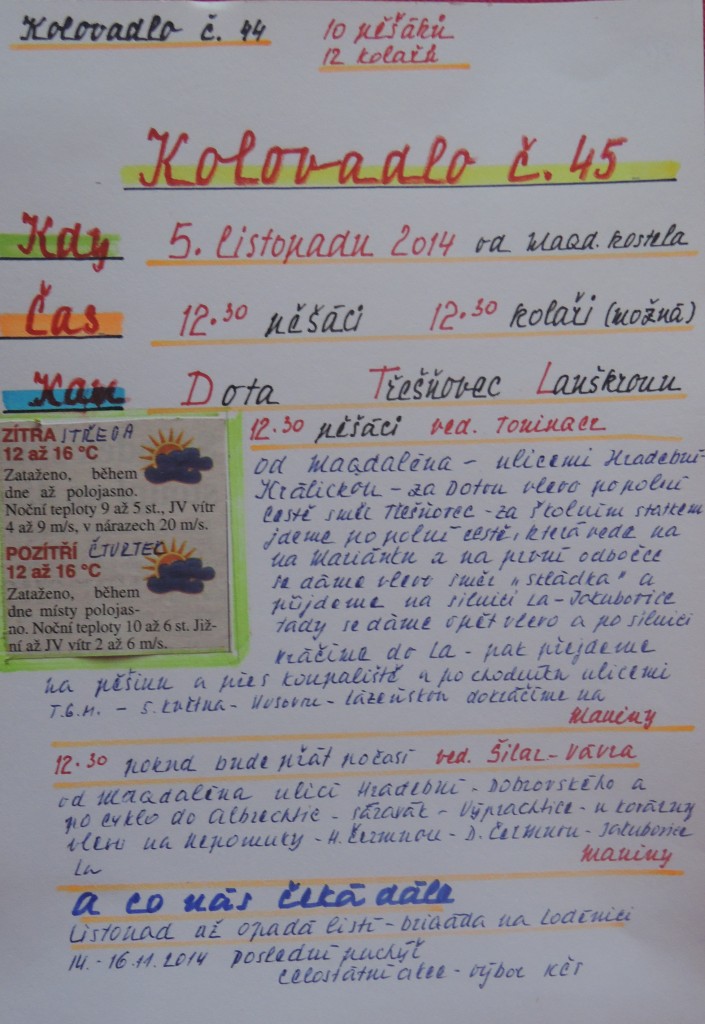 Kolovadlo č. 44
10 pěšáků
12 kolařů
Kolovadlo č. 45
Kdy 5. listopadu 2014 od Magd. kostela
Čas 12.30 pěšáci 12.30 kolaři (možná)
Kam Dota Třešňovec Lanškroun
ZÍTRA STŘEDA
12 až 16 °C
Zataženo, během
dne až polojasno.
Noční teploty 9 až 5 st., JV vítr
4 až 9 m/s, v nárazech 20 m/s.
POZÍTŘÍ ČTVRTEČ
12 až 16 °C
Zataženo, během
dne místy polojas-
no. Noční teploty 10 až 6 st. Již-
ní až JV vítr 2 až 6 m/s.
12.30 pěšáci ved. Tominacz
od Magdaléna - ulicemi Hradební-
Králickou - za Dotou vlevo po polní
cestě směr Třešňovec - za školním statkem
jdeme po polní cestě, která vede na
na Mariánku a na první odbočce
se dáme vlevo směr "skládka" a
přijdeme na silnici La - Jakubovice
tady se dáme opět vlevo a po silnici
kráčíme do La - pak přejdeme
na pěšinu a přes koupaliště a po chodníku ulicemi
T.G.M. - 5. května - Husovou - Lázeňskou dokráčíme na
Mariny
12.30 pokud bude přát počasí ved. Šilar - Vávra
od Magdaléna ulicí Hradební - Dobrovského a
po cyklo do Albrechtic - Sázavák - Výprachtice - u kovárny
vlevo na Nepomuky - H. Čermnou - D. Čermnou - Jakubovice
La
Mariny
a co nás čeká dále
Listopad až opadá listí - brigáda na loděnici
14. - 16.11. 2014 Poslední puchýř
celostátní akce - výbor KČT